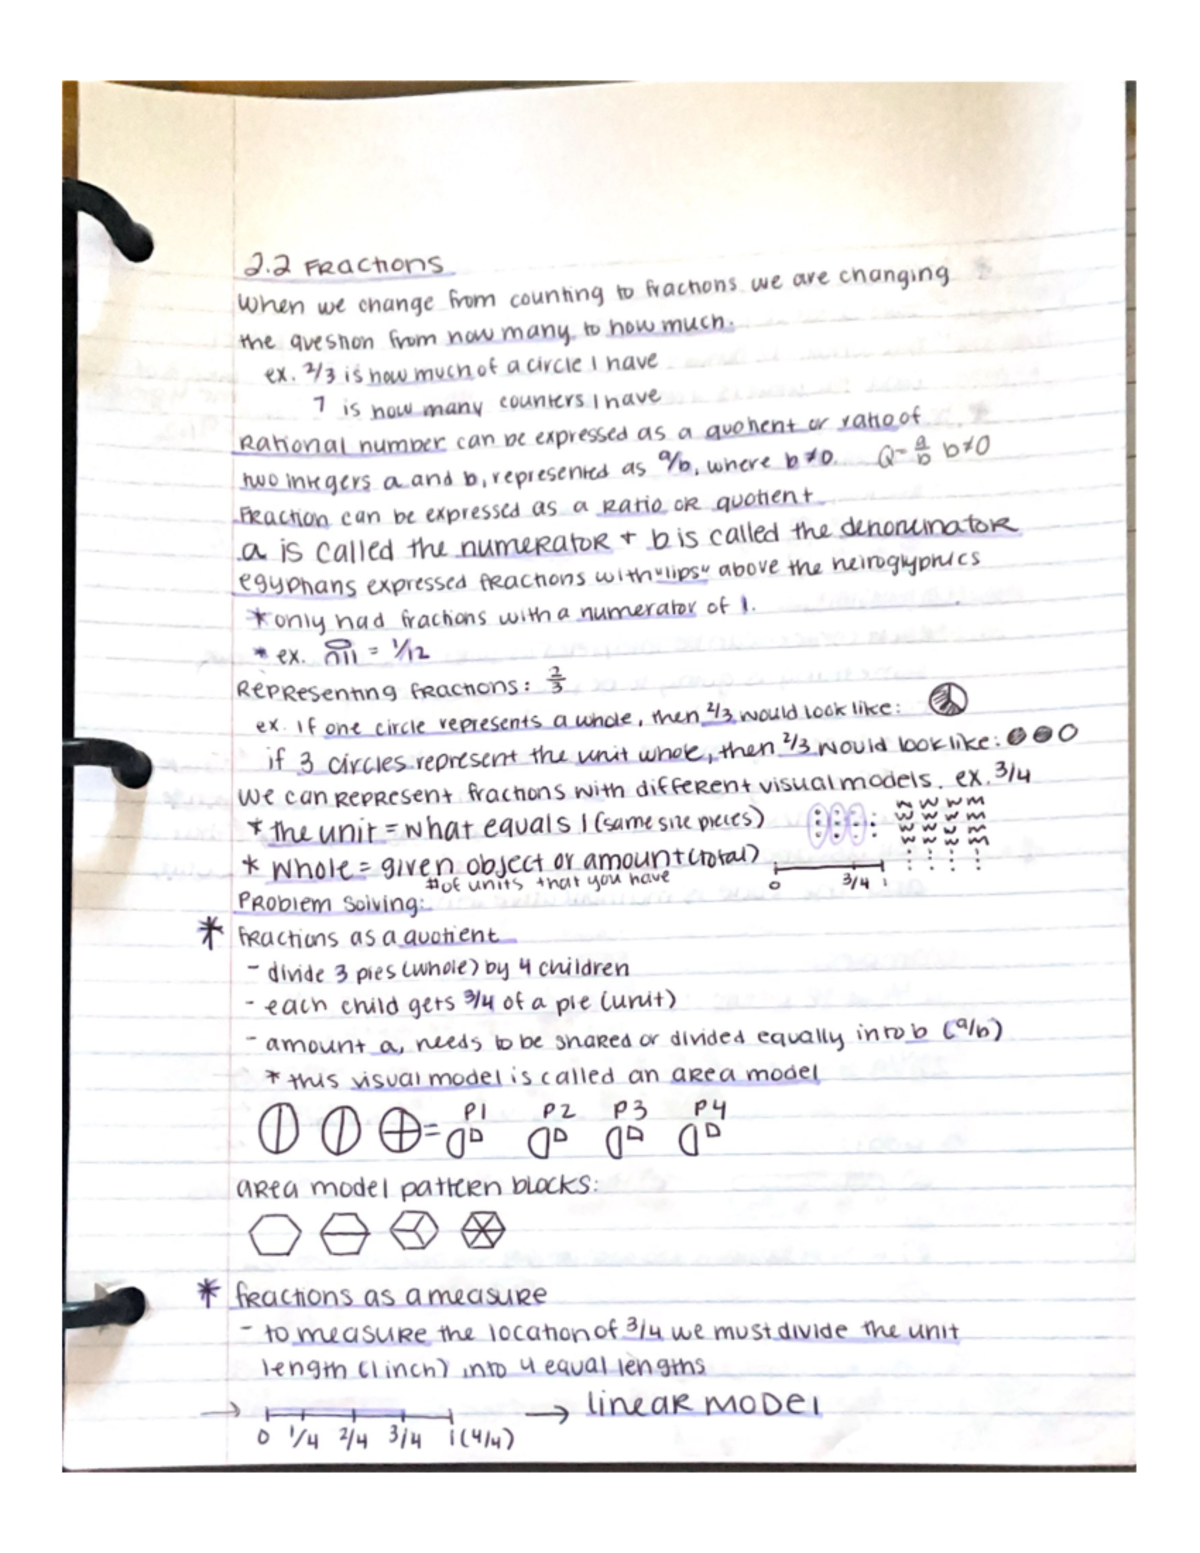 2.2 Fractions
When we change from counting to fractions we are changing
the question from how many to how much.
ex. 2/3 is how much of a circle I have
7 is how many counters I have
Rational number can be expressed as a quotient or ratio of
two integers a and b, represented as a/b, where b≠0. Q= a/b b≠0
Fraction can be expressed as a Ratio or quotient
a is called the numerator + b is called the denominator
egyptians expressed fractions with "lips" above the heiroglyphics
*only had fractions with a numerator of 1.
* ex. = 1/12
Representing fractions: 2/3
ex. If one circle represents a whole, then 2/3 would look like:
if 3 circles represent the unit whole, then 2/3 would look like:
We can Represent fractions with different visual models. ex. 3/4
* the unit = what equals 1 (same size pieces)
* whole = given object or amount (total)
# of units that you have
0 3/4 1
Problem solving:
* fractions as a quotient
- divide 3 pies (whole) by 4 children
- each child gets 3/4 of a pie (unit)
- amount a, needs to be shared or divided equally into b (a/b)
* this visual model is called an area model
= P1 P2 P3 P4
area model pattern blocks:
* fractions as a measure
- to measure the location of 3/4 we must divide the unit
length (1 inch) into 4 equal lengths
→ → linear model
0 1/4 2/4 3/4 1(4/4)